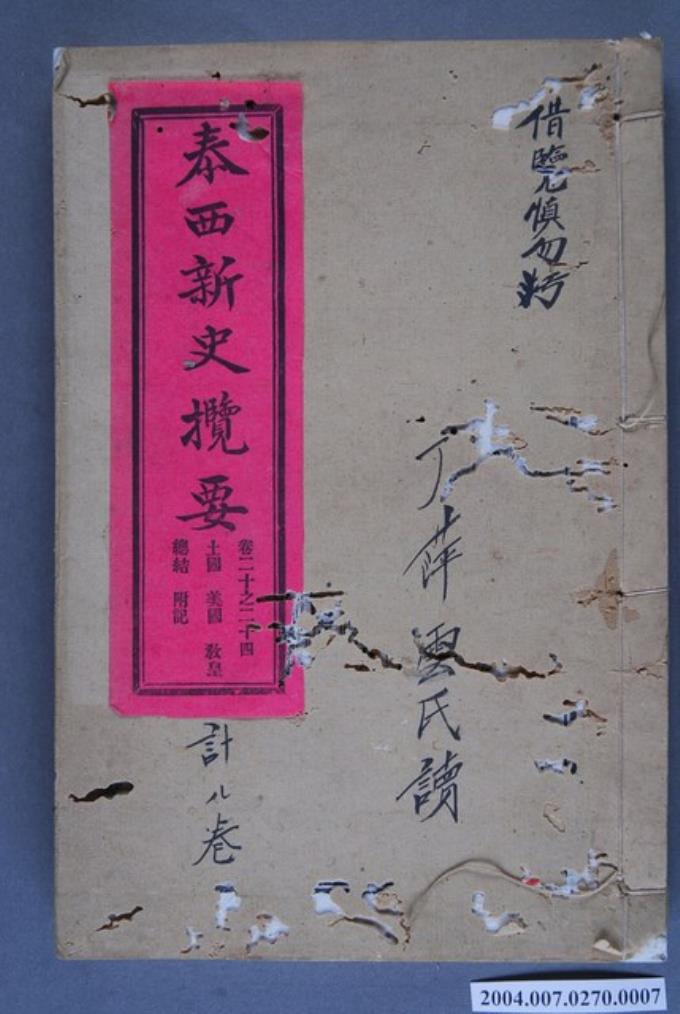 借覽慎勿污
丁萍雲氏讀
泰西新史攬要
卷二十之二十四
土國 美國 教皇
總結 附記
計八卷
2004.007.0270.0007